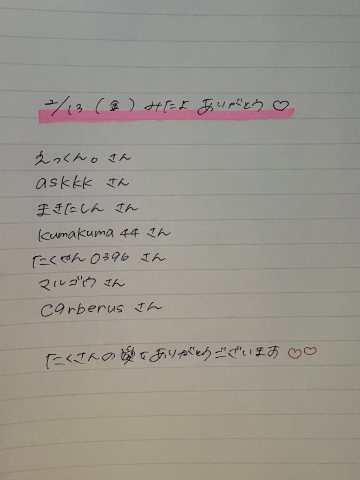 2/13（金）みたよ ありがとう♡
えっくん。さん
askkk さん
まきたしん さん
kumakuma44 さん
たくやん0396 さん
マルゴウ さん
carberus さん
たくさんの愛をありがとうございます♡♡